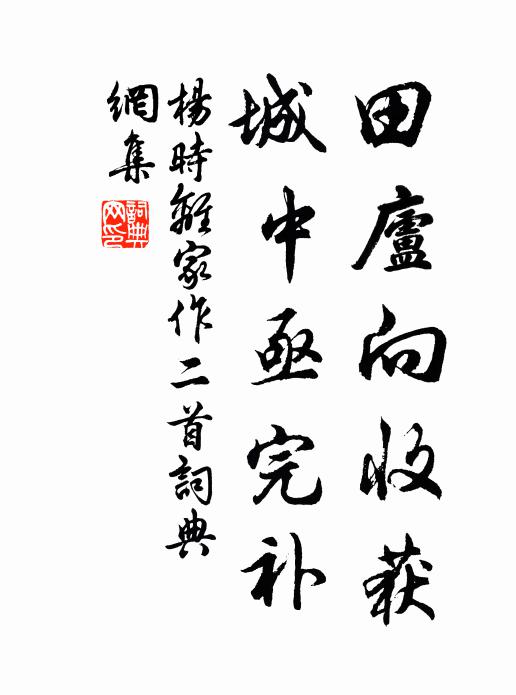 田廬向收获
城中亟完补
楊時離家作二首詞典
網集
詞典
网印